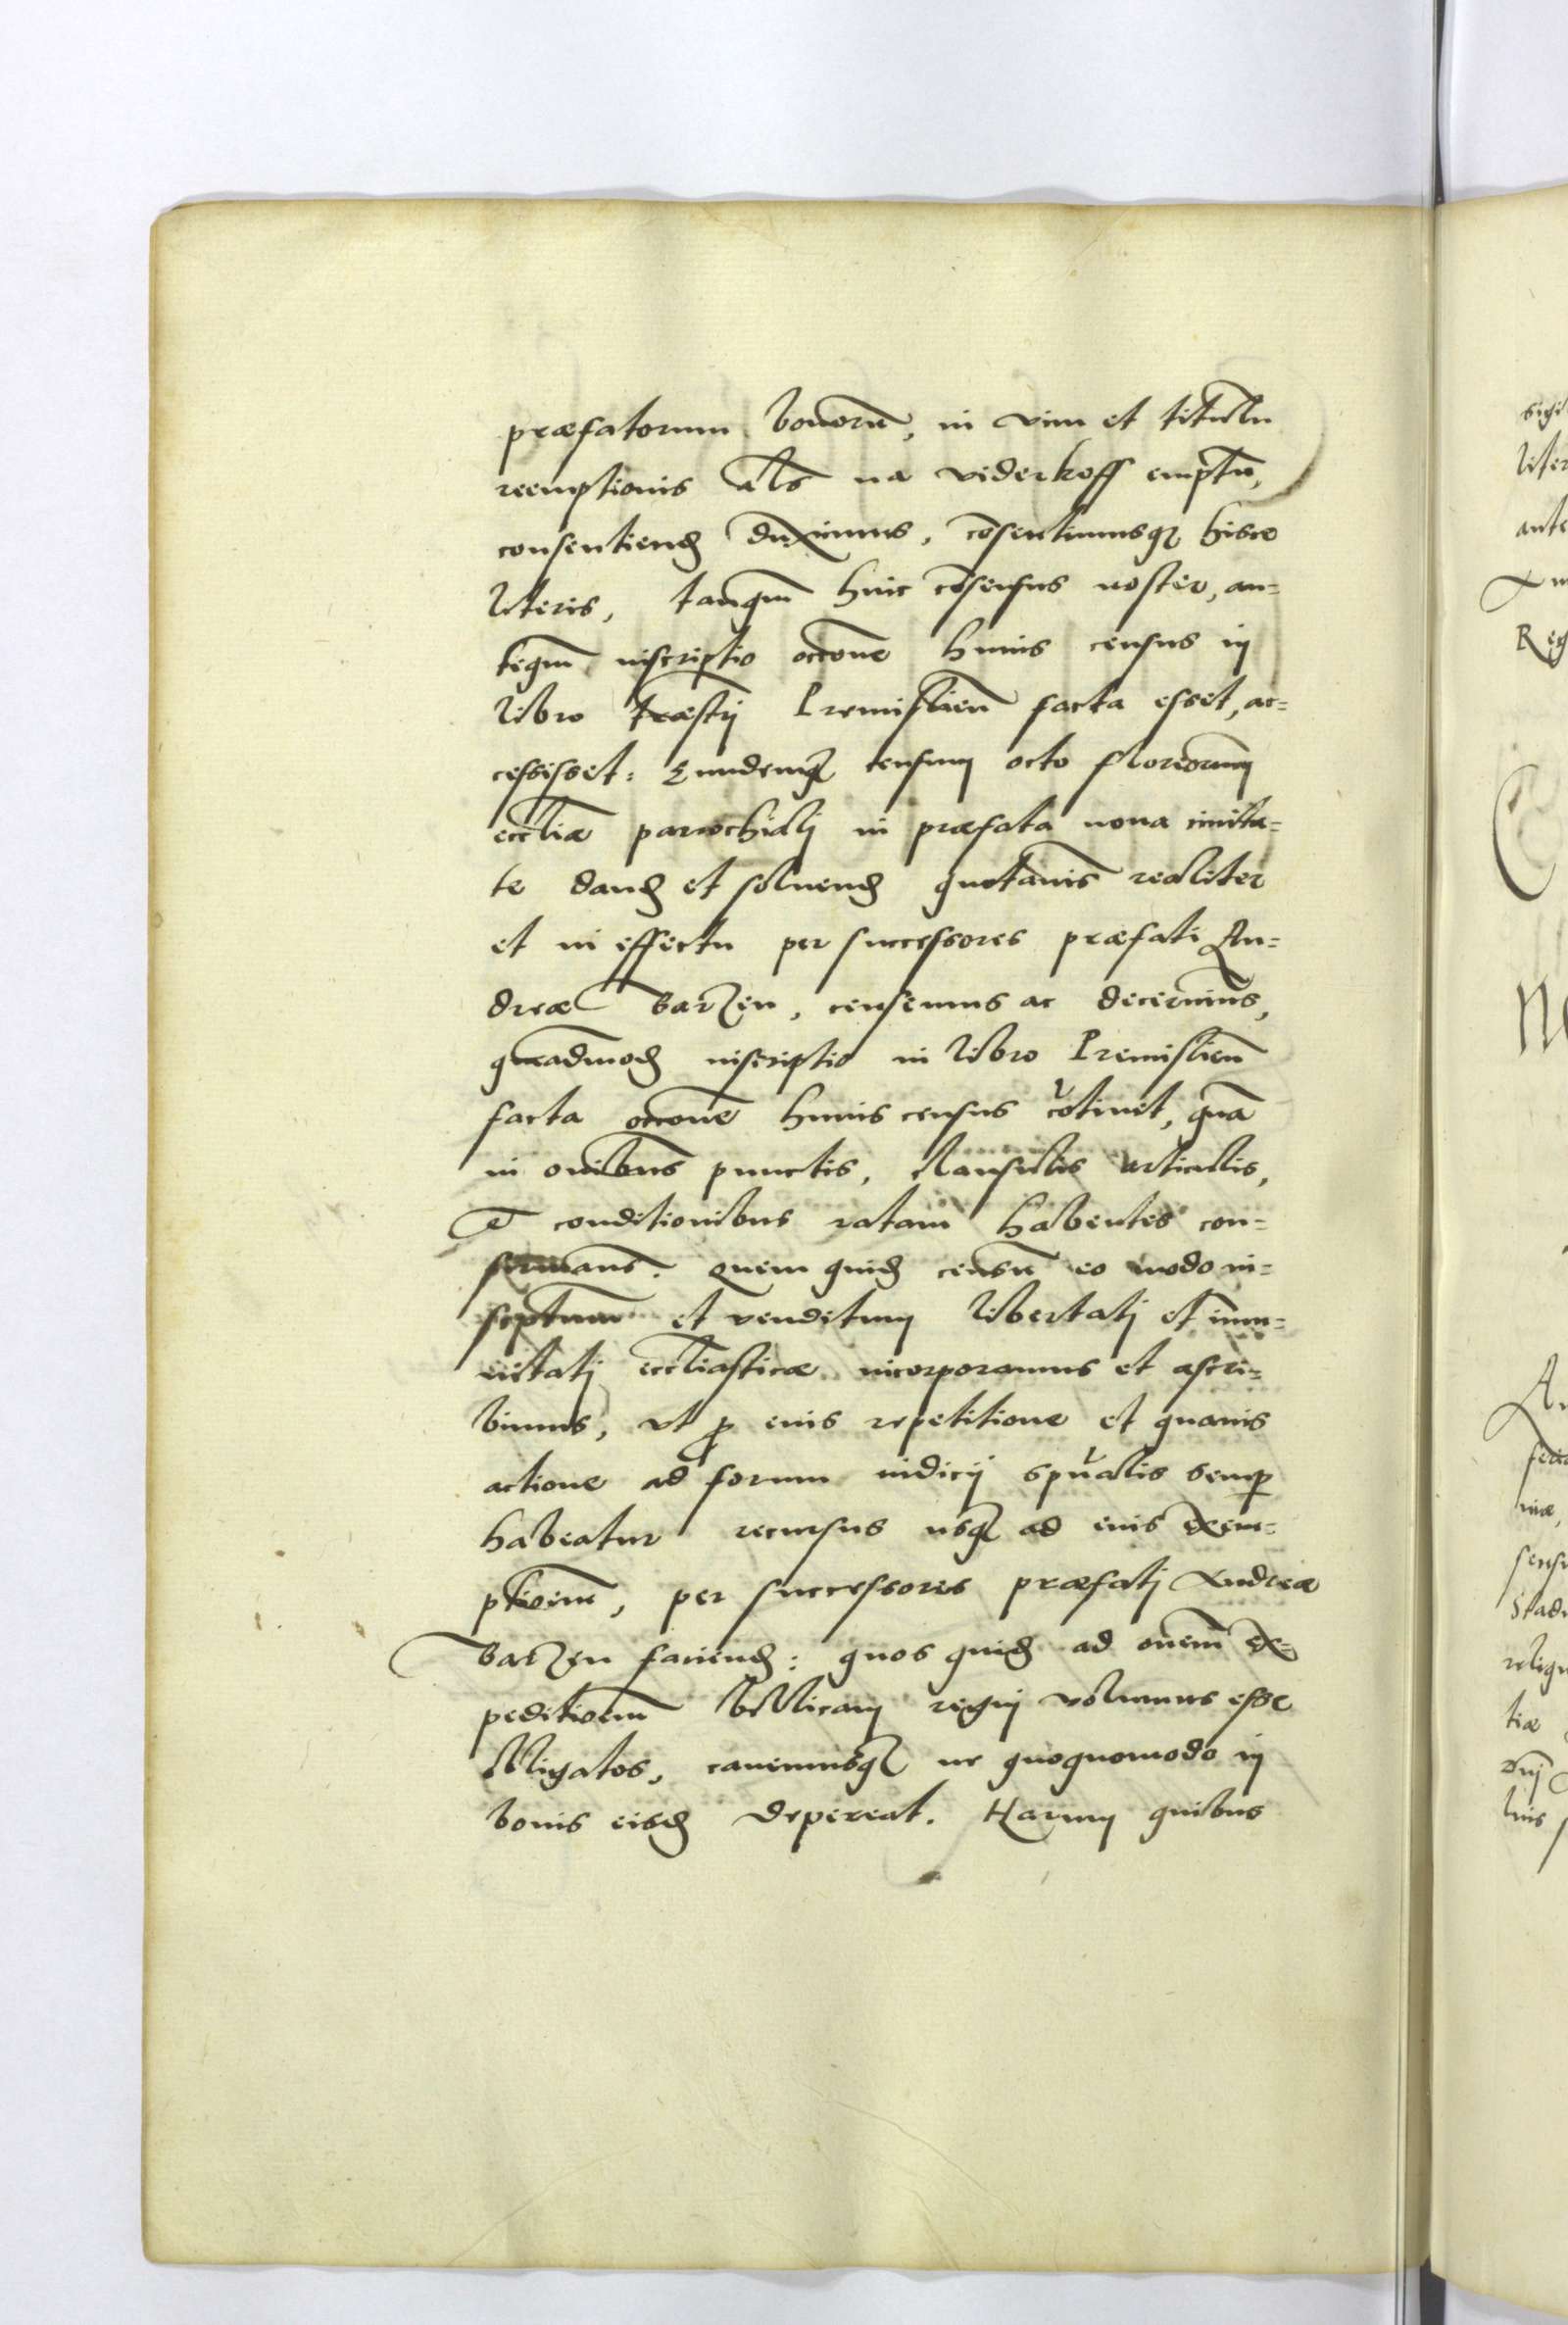 præfatorum bonorũ, in vim et titulu
reemptionis als na viderkoff emptũ,
consentiend duximus, cõsentimusqȝ hisce
literis, tanqm huic cõsensus noster, an=
teqm inscriptio occõne huius census in
libro Premislien facta esset, ac=
cessisset: Eundemqȝ censum octo florenorum
eccliæ parochiali in præfata noua ciuita=
te dand et soluend quotannis realiter
et in effectu per successores præfati An=
dreæ Barzen, censemus ac decernimus,
queadmod inscriptio in libro Premislien
facta occõne huius census cõtinet, quã
in oĩbus punctis, clausulis articulis,
et conditionibus ratam habentes con=
firmams. Quem quid censũ eo modo in=
scptum et venditum libertati et immu=
nitati eccliasticæ incorporamus et ascri=
bimus, vt ꝓ eius repetitione et quauis
actione ad forum iudicij spũalis semꝑ
habeatur recursus usqȝ ad eius exem=
ptionem, per successores præfati Andreæ
Barzen faciend: quos quid ad omnem ex=
peditionem bellicam regni volumus esse
alligatos, cauemusqȝ ne quoquomodo in
bonis eisd depereat. Harum quibus
sigil
liter
ante
Reg
No
sensu
Stad
religu
tiæ